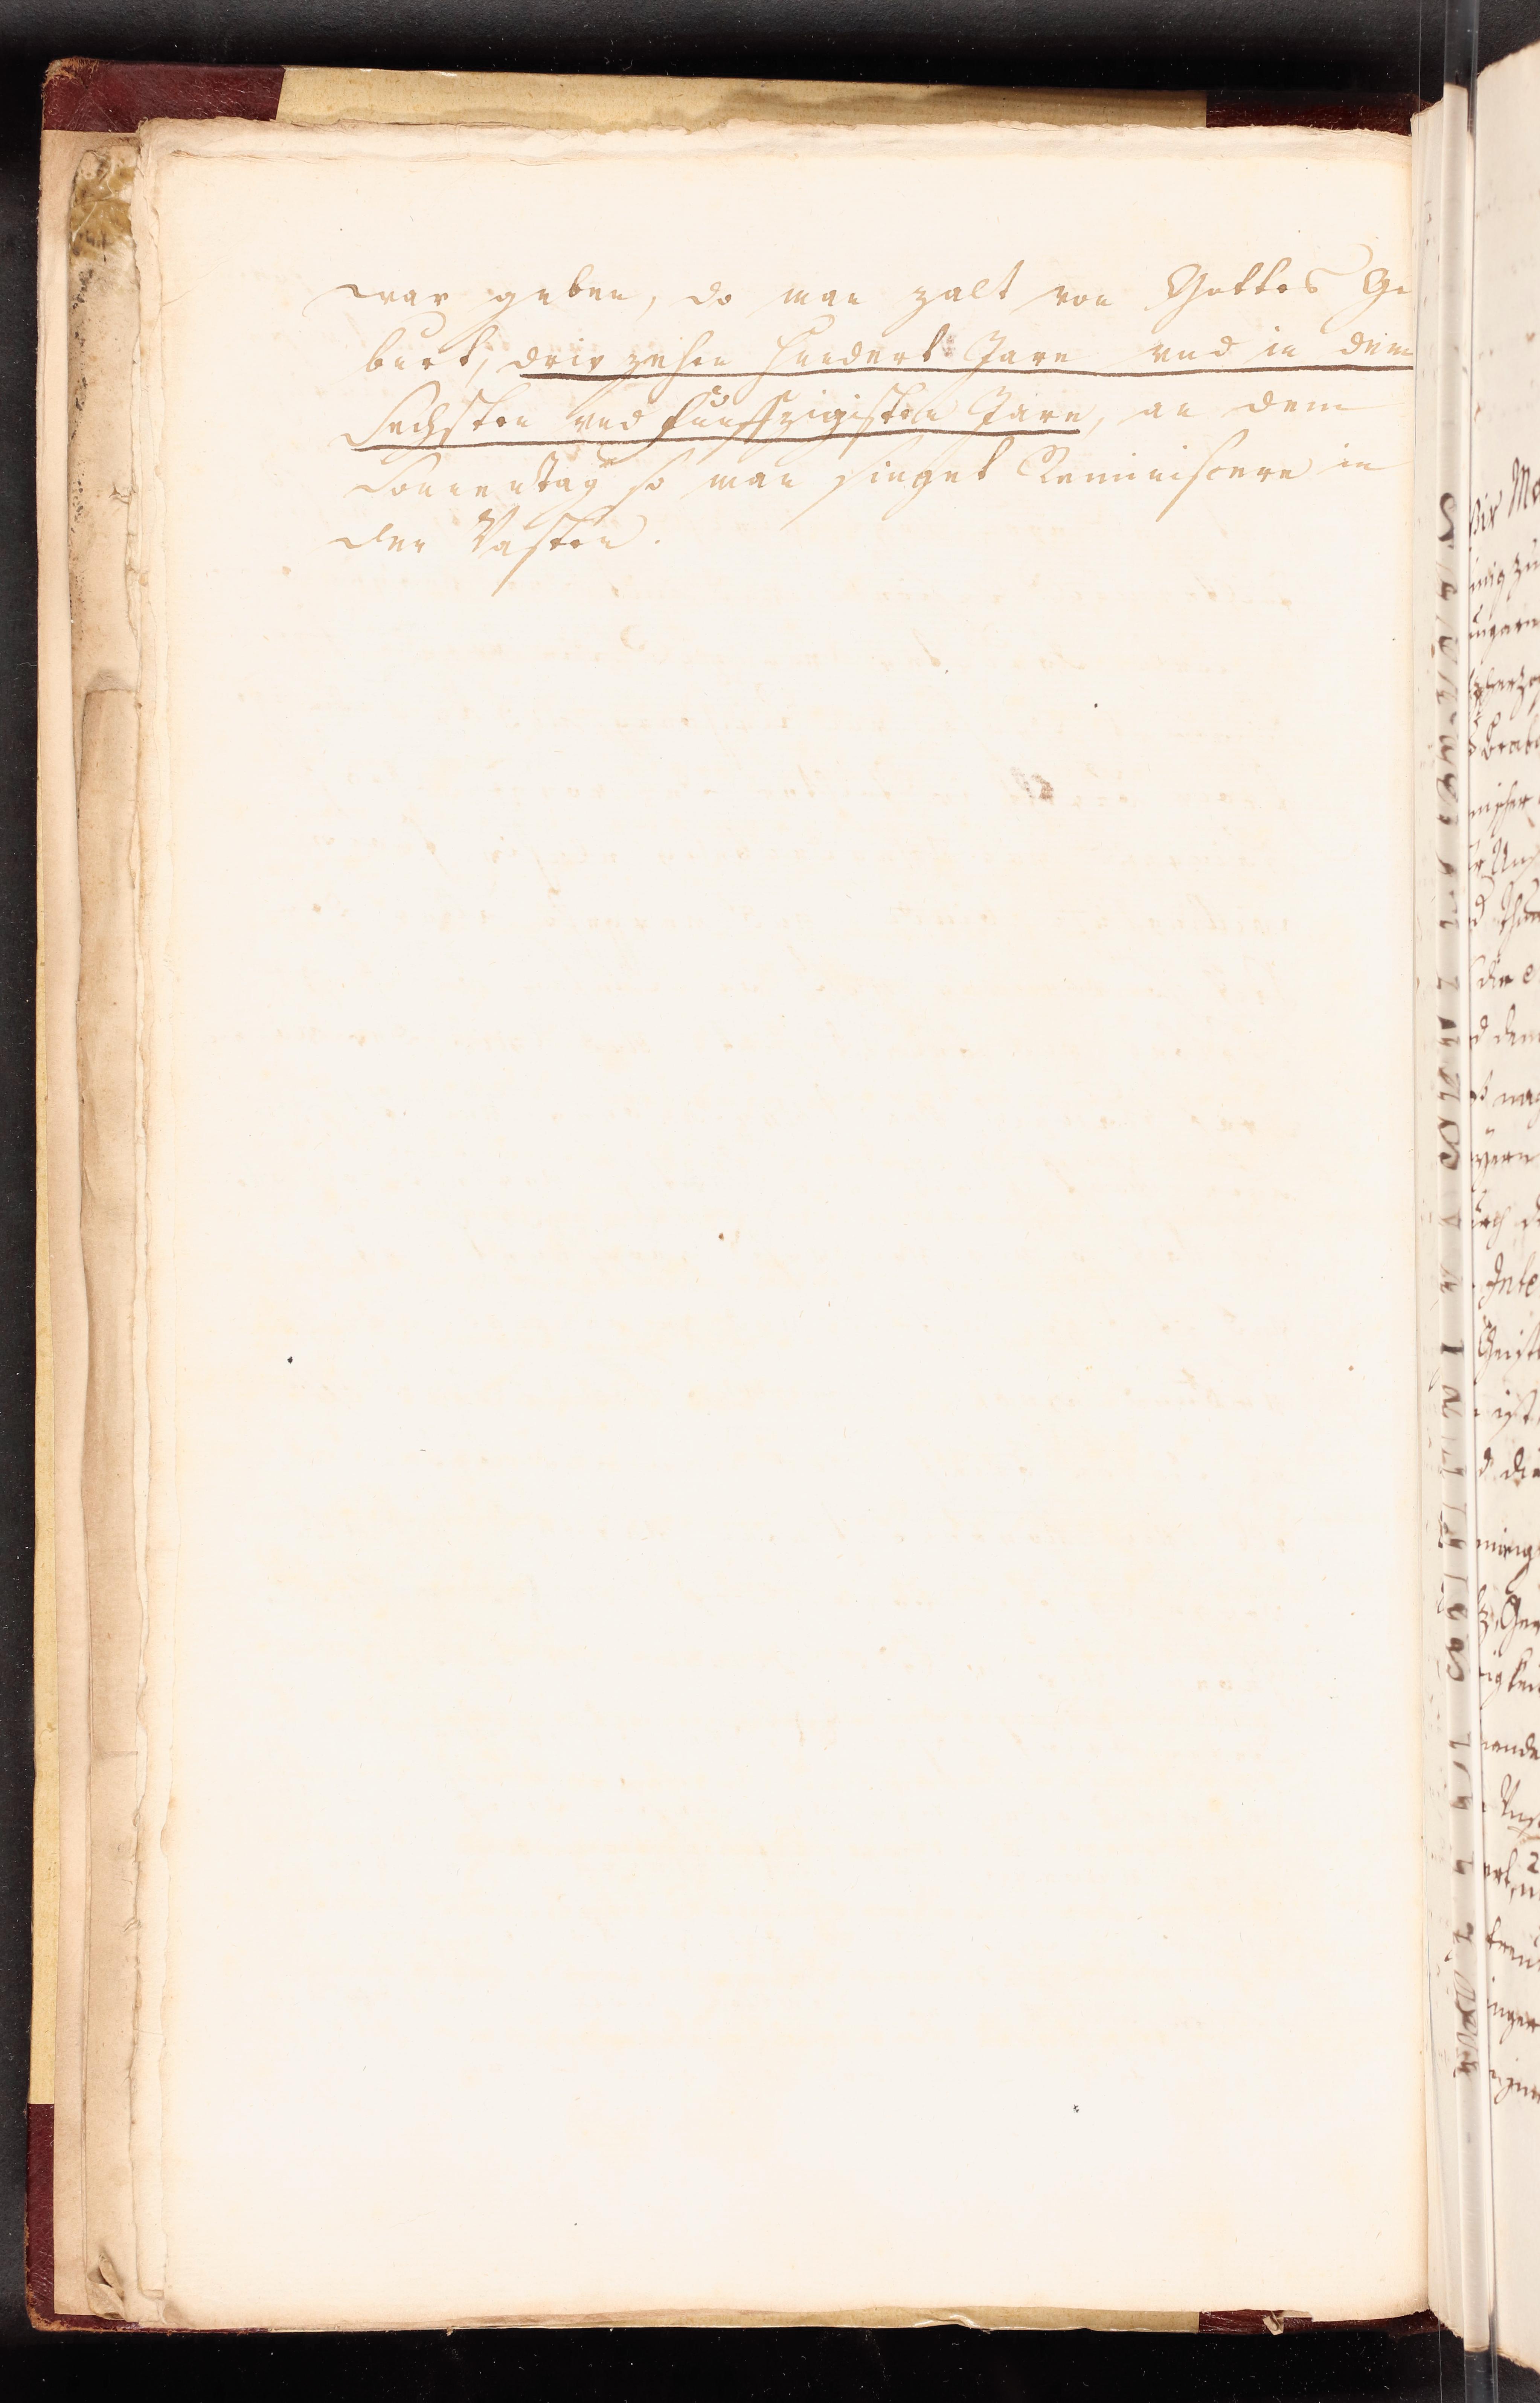 war geben, do man zalt von Gottes Ge
burt, driv zehen hundert Jare vnd in dem
Sechsten vnd fünffzigisten Jare, an dem
Sonnentag so man singet Reminiscere in
der Vasten.